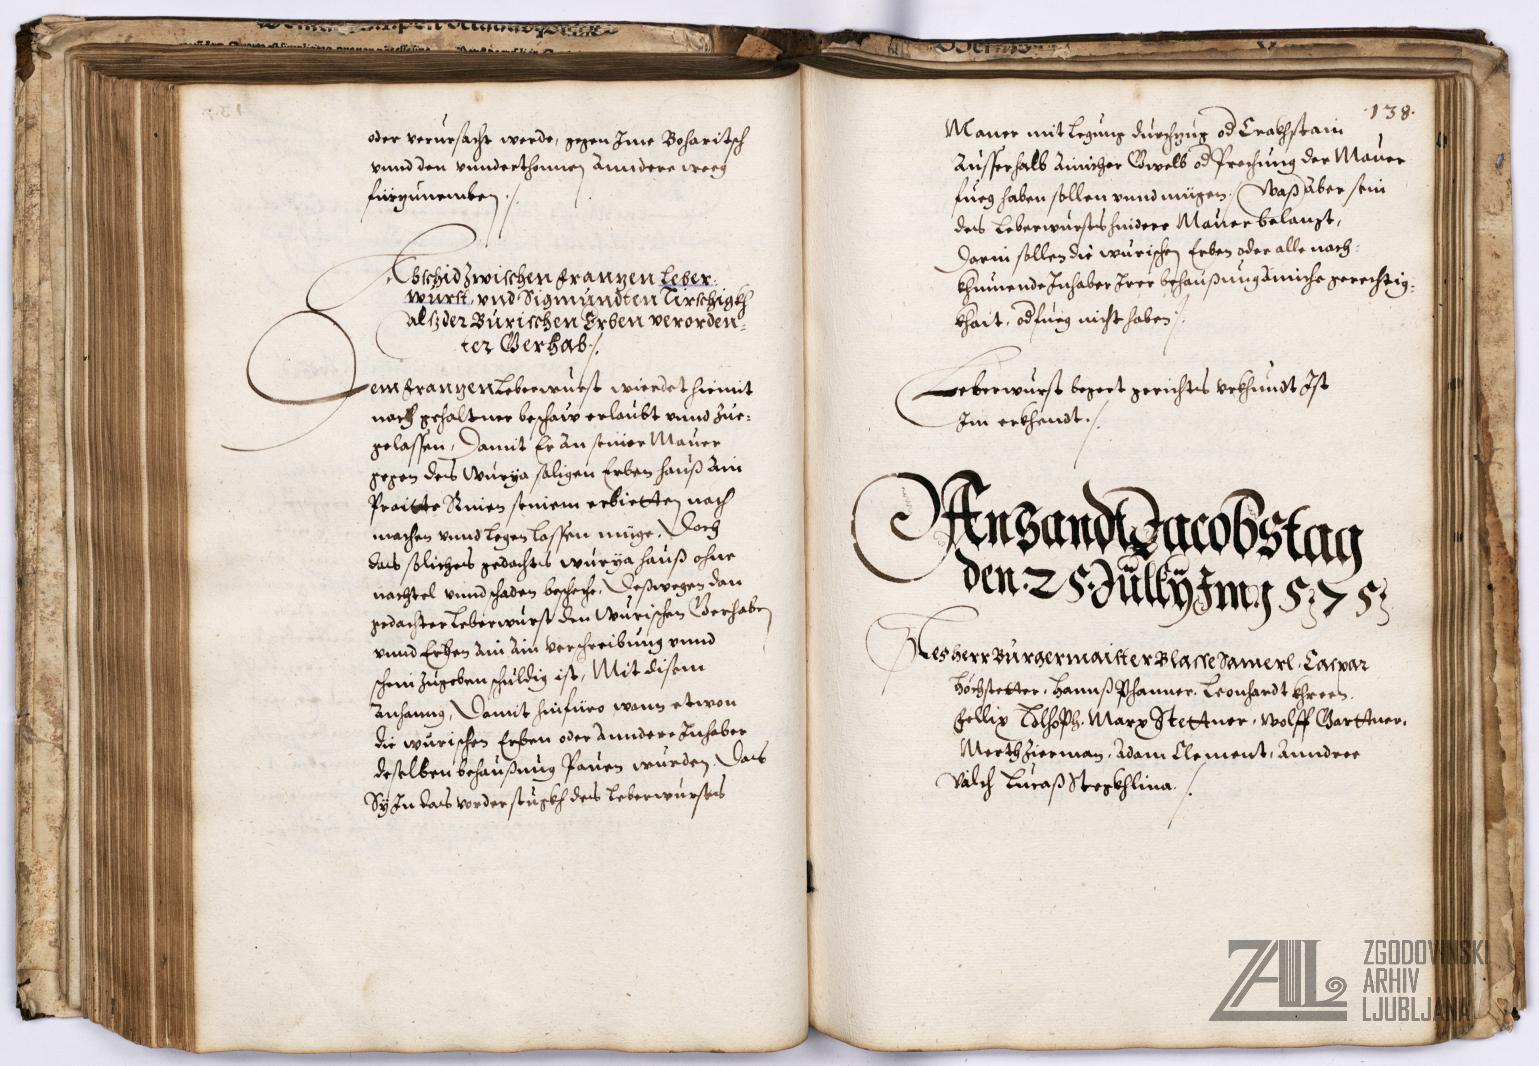 oder verursacht werde, gegen Ime Boharitsch
vnnd den vnnderthonnen anndere weeg
fürzunemben ./.
Abschid zwischen Franzen Leber-
wurst, vnd Sigmundten Tirschigkh
als der Wurischen Erben verorden-
ter Gerhab ./.
Dem Franzen Leberwurst wierdet hiemit
nach gehaltner beschaw erlaubt vnnd zue-
gelassen, Damit Er an seiner Mauer
gegen des Wurya säligen Erben hauß ain
Praitte Rinen seinem erbietten nach
machen vnnd legen lassen müge, Doch
das solliches gedachts Wurya hauß ohne
nachtel vnnd schaden beschehe, Deßwegen dan
gedachter Leberwurst den Wurischen Gerhaben
vnnd Erben ain ain verschreibung vnnd
schein zugeben schuldig ist, Mit disem
Anhanng, Damit hinfüro wann etwon
die Wurischen Erben oder anndere Inhaber
deselben behaußung Pauen wurden, Das
Sy In das vorder stugkh des Leberwursts
·138·
Mauer mit legung durchzug od Crakhstain
ausserhalb ainicher Gwelb od Prechung der Mauer
fueg haben sollen vnnd mügen, Was aber sein
des Leberwursts hindere Mauer belangt,
Darin sollen die Wurischen Erben oder alle nach-
khumende Inhaber Irer behaußung ainiche gerechtig-
khait, od fueg nicht haben ./.
Leberwurst begert gerichts vrkhundt Ist
Im erkhendt ./.
An Sandt Jacobstag
den 25 Jully Im 1575
Herr Burgermaister Blasse Samerl, Caspar
Höchstetter, Hannß Phanner, Leonhardt Khreen,
Fellix Marx Stettner, Wolff Garttner,
Merth Zierman, Adam Clement, Anndree
Valch Lucaß Stegkhlina ./.
ZAL
ZGODOVINSKI
ARHIV
LJUBLJANA